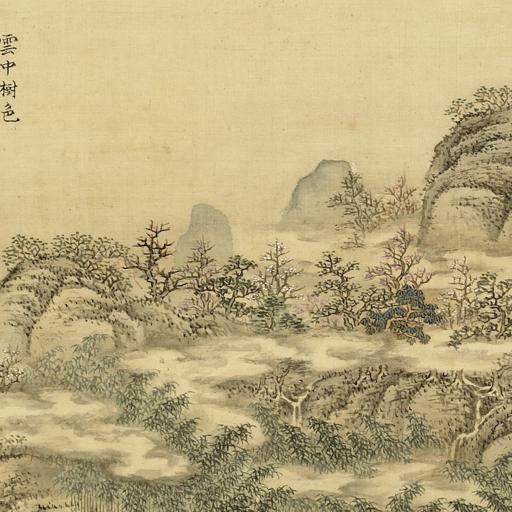 雲中樹色